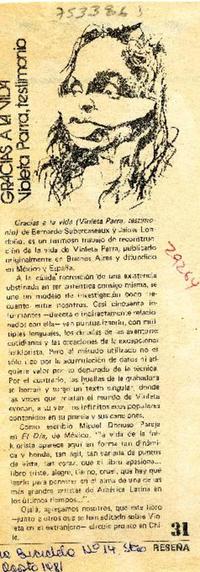 753386
GRACIAS A LA VIDA
Violeta Parra, testimonio
Gracias a la vida (Violeta Parra, testimo-
nio) de Bernardo Subercaseaux y Jaime Lon-
doño, es un hermoso trabajo de reconstruc-
ción de la vida de Violeta Parra, publicado
originalmente en Buenos Aires y difundido
en México y España.
A la cálida recreación de una existencia
obstinada en ser auténtica consigo misma, se
une un modelo de investigación poco fre-
cuente entre nosotros. Casi cincuenta in-
formantes —directa o indirectamente relacio-
nados con ella— van puntualizando, con múl-
tiples lenguajes, los detalles de las aventuras
cotidianas y las ocasiones de la excepcional
folklorista. Pero el método utilizado no es
sólo por la acumulación de datos: ad-
quiere valor por lo depurado de la técnica.
Por el contrario, las huellas de la grabadora
se borran y surge un texto singular, donde
las voces que relatan el mundo de Violeta
evocan, a su vez, los infinitos ecos populares
contenidos en su poesía y sus canciones.
Como escribió Miguel Donoso Pareja
en El Día, de México, "La vida de la folk-
lorista aparece aquí en forma tan diná-
mica y honda, tan ágil, tan variada de puntos
de vista, tan coral, que el libro apasiona...
libro triste, alegre, tierno, cruel, que hay que
leerlo para penetrar en el alma de una de las
más grandes artistas de América Latina en
los últimos tiempos...".
Ojalá, agregamos nosotros, que este libro
—junto a otros que se han editado sobre Vio-
leta en el extranjero— circule pronto en Chi-
le.
29264
31
RESEÑA
La Bicicleta Nº 14 Stgo
Agosto 1981